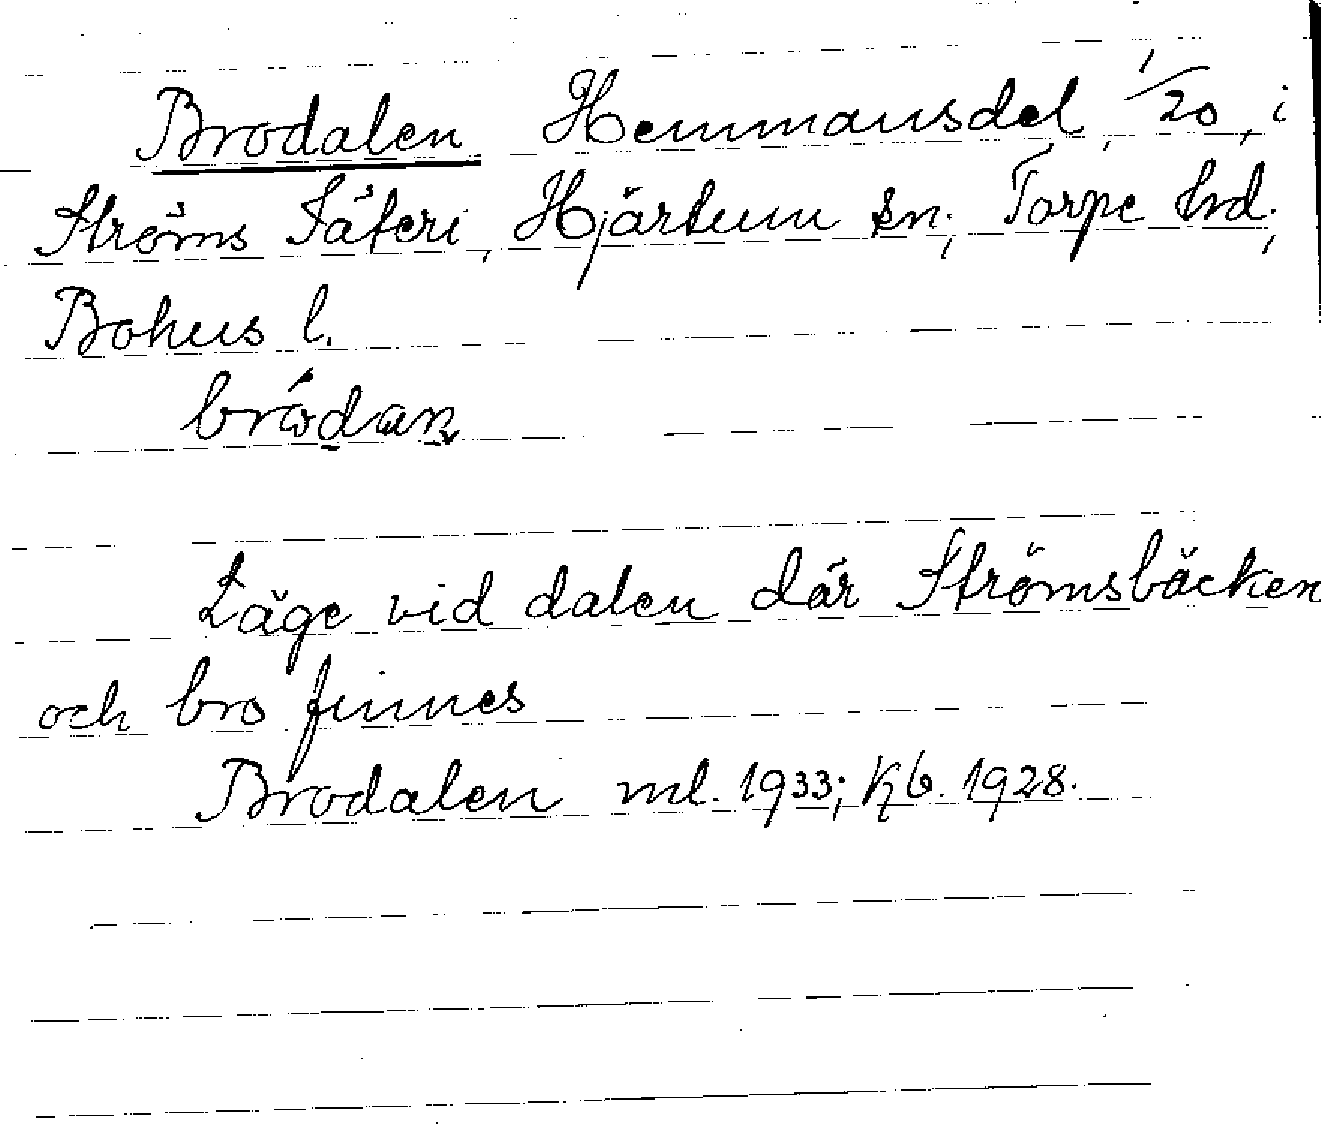 Brodalen Hemmansdel, 1/20, i
Ströms Säteri, Hjärtum sn; Torpe hrd;
Bohus l.
Läge vid dalen där Strömsbäcken
och bro finnes
Brodalen ml. 1933; Kb. 1928.